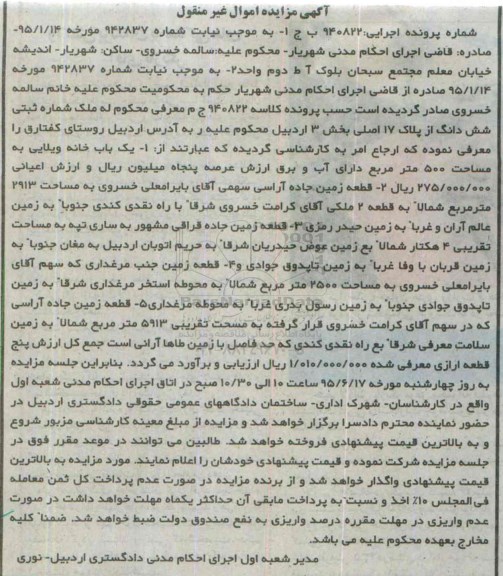 آگهی مزایده اموال غیر منقول
شماره پرونده اجرایی:۹۴۰۸۲۲ ب ج ۱- به موجب نیابت شماره ۹۴۲۸۳۷ مورخه ۹۵/۱/۱۴-
صادره: قاضی اجرای احکام مدنی شهریار- محکوم علیه:سالمه خسروی- ساکن: شهریار- اندیشه
خیابان معلم مجتمع سبحان بلوک آ ط دوم واحد۲- به موجب نیابت شماره ۹۴۲۸۳۷ مورخه
۹۵/۱/۱۴ صادره از قاضی اجرای احکام مدنی شهریار حکم به محکومیت محکوم علیه خانم سالمه
خسروی صادر گردیده است حسب پرونده کلاسه ۹۴۰۸۲۲ ج م معرفی محکوم له ملک شماره ثبتی
شش دانگ از پلاک ۱۷ اصلی بخش ۳ اردبیل محکوم علیه ر به آدرس اردبیل روستای کفتارق را
معرفی نموده که ارجاع امر به کارشناسی گردیده که عبارتند از: ۱- یک باب خانه ویلایی به
مساحت ۵۰۰ متر مربع دارای آب و برق ارزش عرصه پنجاه میلیون ریال و ارزش اعیانی
۲۷۵/۰۰۰/۰۰۰ ریال ۲- قطعه زمین جاده آراسی سهمی آقای بایرامعلی خسروی به مساحت ۲۹۱۳
مترمربع شمالاً به قطعه ۲ ملکی آقای کرامت خسروی شرقاً با راه نقدی کندی جنوباً به زمین
عالم آران و غرباً به زمین حیدر رمزی ۳- قطعه زمین جاده قراقی مشهور به ساری تپه به مساحت
تقریبی ۴ هکتار شمالاً بع زمین عوض حیدریان شرقاً به حریم اتوبان اردبیل به مغان جنوباً به
زمین قربان با وفا غرباً به زمین تاپدوق جوادی و۴- قطعه زمین جنب مرغداری که سهم آقای
بایرامعلی خسروی به مساحت ۲۵۰۰ متر مربع شمالاً به محوطه استخر مرغداری شرقاً به زمین
تاپدوق جوادی جنوباً به زمین رسول بدری غرباً به محوطه مرغداری۵- قطعه زمین جاده آراسی
که در سهم آقای کرامت خسروی قرار گرفته به مسحت تقریبی ۵۹۱۳ متر مربع شمالاً به زمین
سلامت معرفی شرقاً بع راه نقدی کندی که حد فاصل با زمین طاها آرانی است جمع کل ارزش پنج
قطعه ارازی معرفی شده ۱/۰۱۰/۰۰۰/۰۰۰ ریال ارزیابی و برآورد می گردد. بنابراین جلسه مزایده
به روز چهارشنبه مورخه ۹۵/۶/۱۷ ساعت ۱۰ الی ۱۰/۳۰ صبح در اتاق اجرای احکام مدنی شعبه اول
واقع در کارشناسان- شهرک اداری- ساختمان دادگاههای عمومی حقوقی دادگستری اردبیل در
حضور نماینده محترم دادسرا برگزار خواهد شد و مزایده از مبلغ معینه کارشناسی مزبور شروع
و به بالاترین قیمت پیشنهادی فروخته خواهد شد. طالبین می توانند در موعد مقرر فوق در
جلسه مزایده شرکت نموده و قیمت پیشنهادی خودشان را اعلام نمایند. مورد مزایده به بالاترین
قیمت پیشنهادی واگذار خواهد شد و از برنده مزایده در صورت عدم پرداخت کل ثمن معامله
فی المجلس ۱۰٪ اخذ و نسبت به پرداخت مابقی آن حداکثر یکماه مهلت خواهد داشت در صورت
عدم واریزی در مهلت مقرره درصد واریزی به نفع صندوق دولت ضبط خواهد شد. ضمناً کلیه
مخارج بعهده محکوم علیه می باشد.
مدیر شعبه اول اجرای احکام مدنی دادگستری اردبیل- نوری